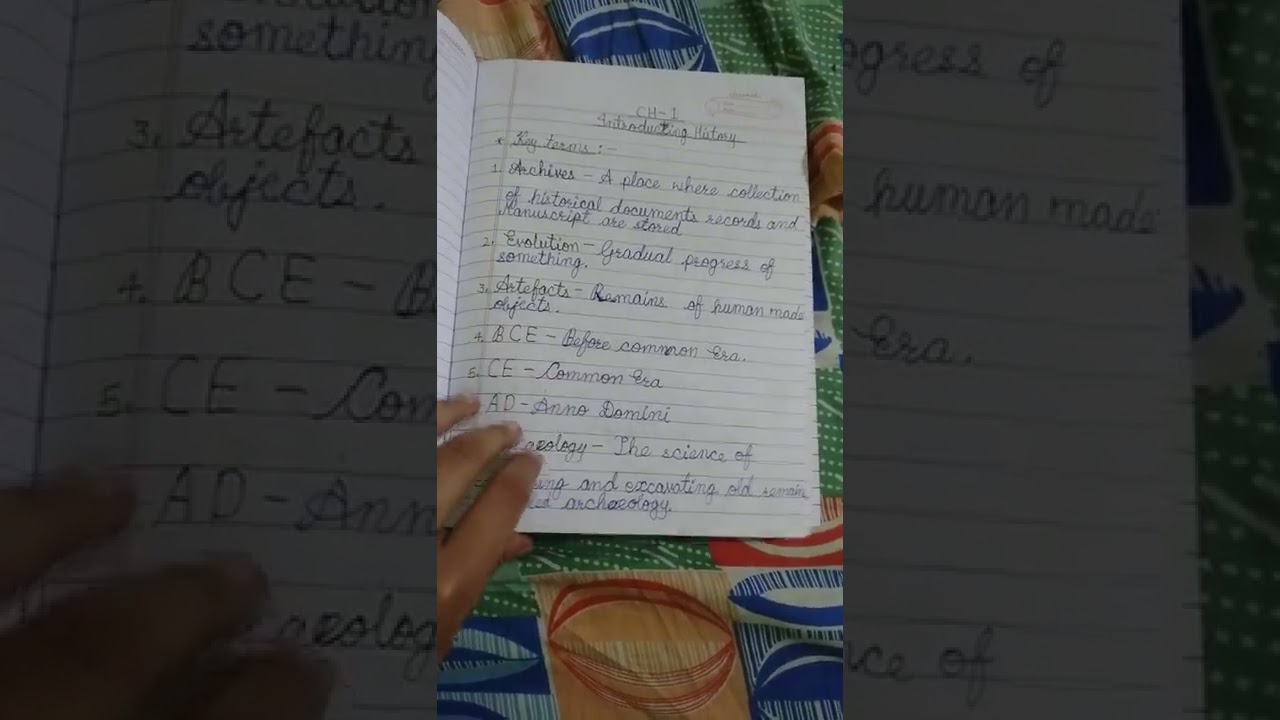 CH-1
Introducting History
* Key terms :-
1. Archives - A place where collection
of historical documents records and
Manuscript are stored
2. Evolution - Gradual progress of
something.
3. Artefacts - Remains of human made
objects.
4. BCE - Before common Era.
5. CE - Common Era
AD - Anno Domini
aeology - The science of
ing and excavating old remain
ed archaeology.